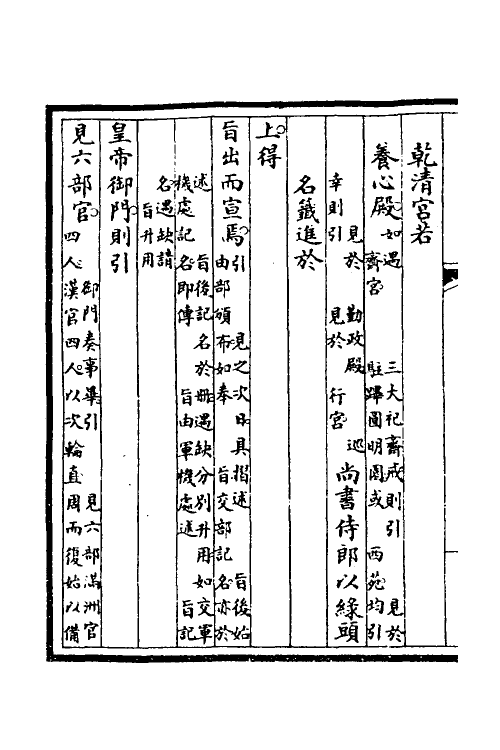 乾清宮若
養心殿
如遇 三大祀齋戒則引 見於
齋宮 駐蹕圓明園或 西苑均引
見於 勤政殿 巡
幸則引 見於 行宮
尚書侍郎以綠頭
名籤進於
上得
旨出而宣焉
引 見之次日具摺述 旨後始
由部頒布如奉 旨交部記名亦於
述 旨後記 名於冊遇缺分別升用如交軍
機處記 名即傳 旨由軍機處述 旨記
名遇缺請
旨升用
皇帝御門則引
見六部官
御門奏事畢引 見六部滿洲官
四人漢官四人以次輪直周而復始以備